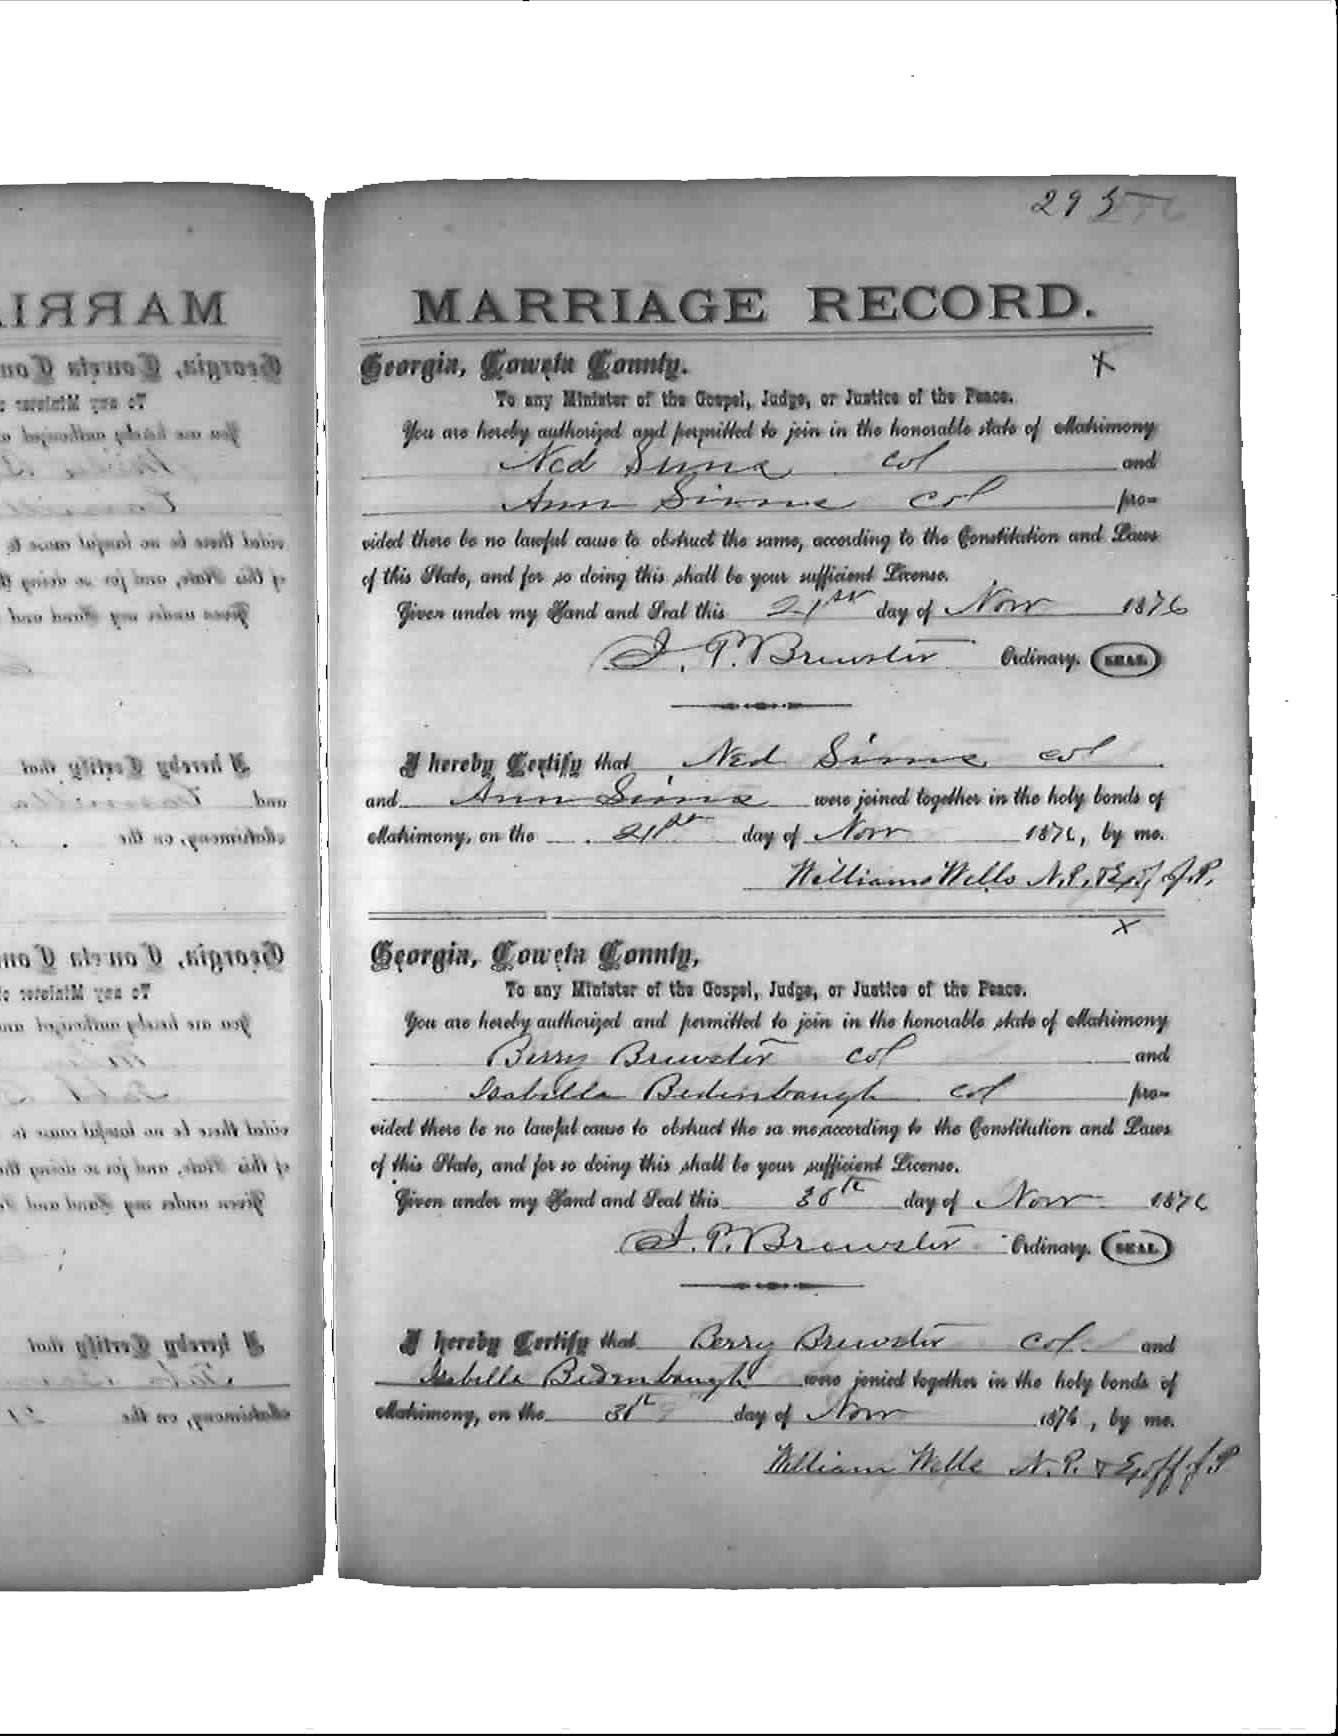 295
MARRIAGE RECORD.
Georgia, Coweta County.
To any Minister of the Gospel, Judge, or Justice of the Peace.
You are hereby authorized and permitted to join in the honorable state of Matrimony
Ned Sims col and
Ann Simms col pro-
vided there be no lawful cause to obstruct the same, according to the Constitution and Laws
of this State, and for so doing this shall be your sufficient License.
Given under my Hand and Seal this 21st day of Nov 1876
J. P. Brewster Ordinary. SEAL.
I hereby Certify that Ned Simms col
and Ann Sims were joined together in the holy bonds of
Matrimony, on the 21st day of Nov 1876, by me.
Williams Wells N.P. & Exof J.P.
Georgia, Coweta Connty,
To any Minister of the Gospel, Judge, or Justice of the Peace.
You are hereby authorized and permitted to join in the honorable state of Matrimony
Berry Brewster col and
Isabella Bedenbaugh col pro-
vided there be no lawful cause to obstruct the sa me,according to the Constitution and Laws
of this State, and for so doing this shall be your sufficient License.
Given under my Hand and Seal this 30th day of Nov 1876
J. P. Brewster Ordinary. SEAL.
I hereby Certify that Berry Brewster col. and
Isabella Bedenbaugh were jonied together in the holy bonds of
Matrimony, on the 30th day of Nov 1876, by me.
William Wells N.P. & Exoff J P